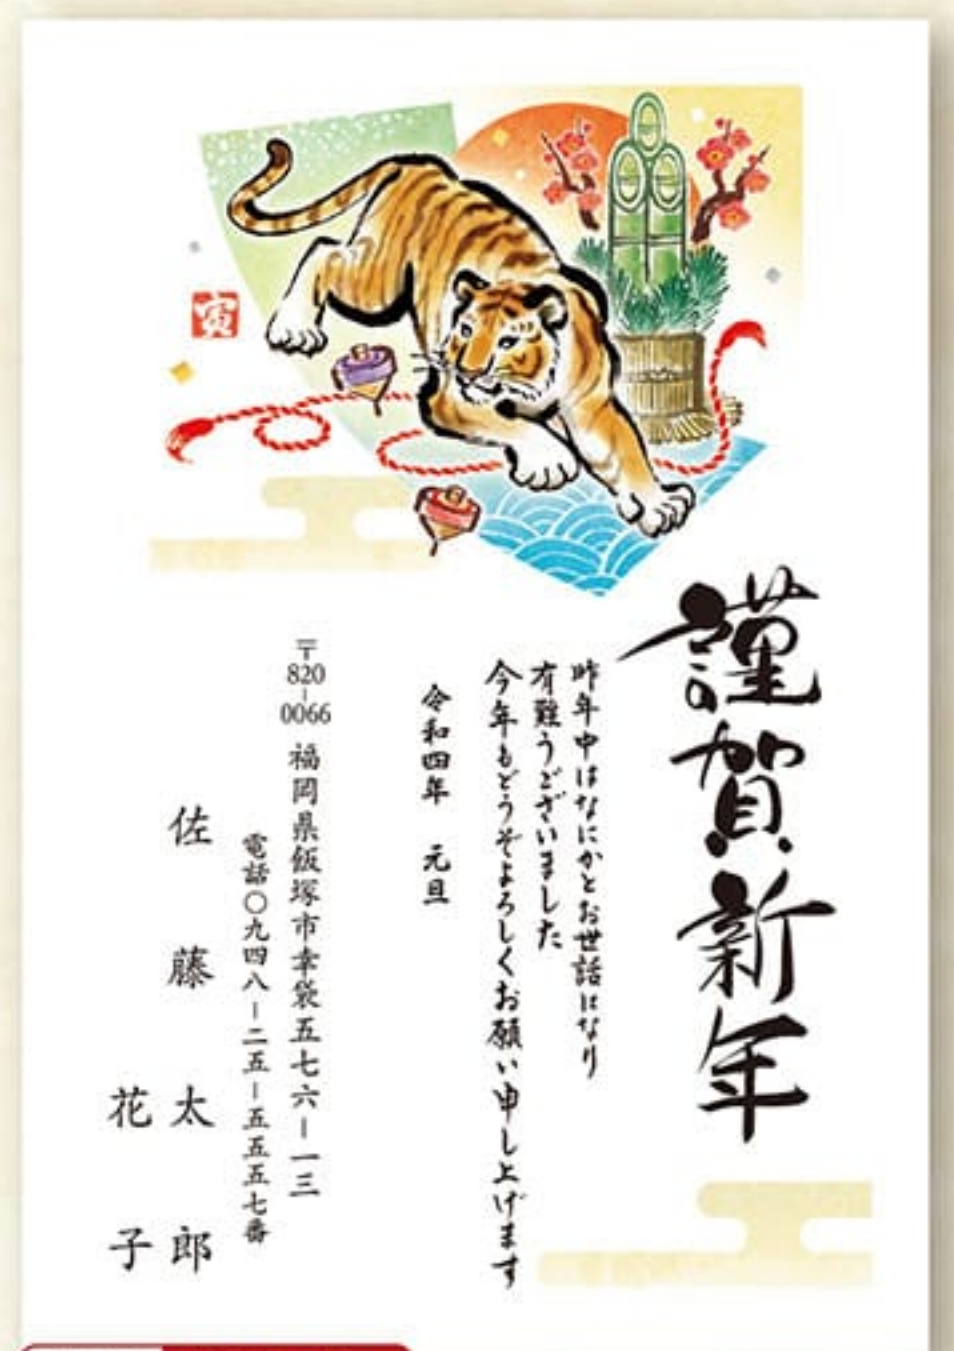 寅
謹賀新年
昨年中はなにかとお世話になり
有難うございました
今年もどうぞよろしくお願い申し上げます
令和四年 元旦
〒820-0066 福岡県飯塚市幸袋五七六-一三
電話〇九四八-二五-五五五七番
佐藤 太郎
花子